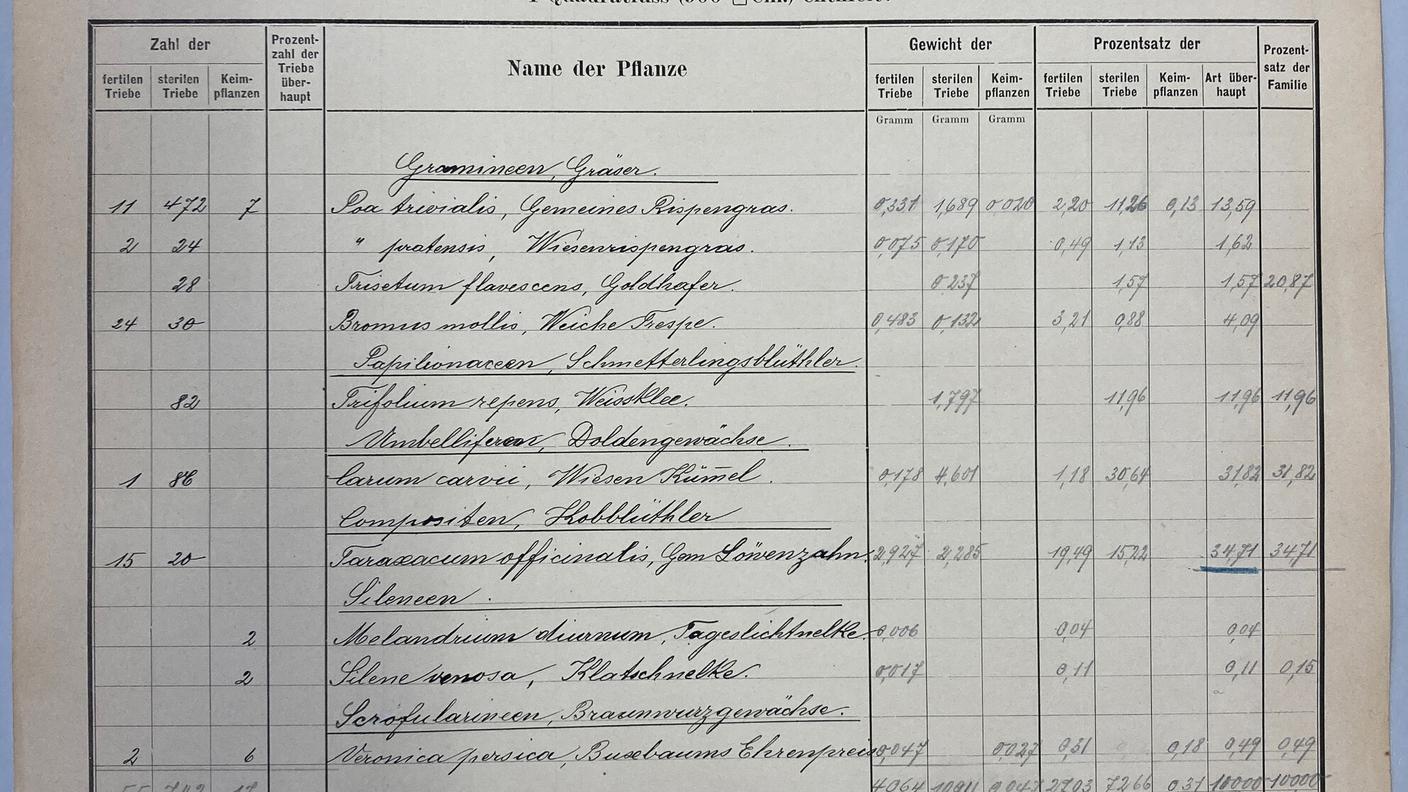 1 Quadratfuss (900 □ cm.) entfiert.
Zahl der Prozentzahl der Triebe überhaupt Name der Pflanze Gewicht der Prozentsatz der Prozentsatz der Familie
fertilen Triebe sterilen Triebe Keimpflanzen fertilen Triebe sterilen Triebe Keimpflanzen fertilen Triebe sterilen Triebe Keimpflanzen Art überhaupt
Gramm Gramm Gramm
Gramineen, Gräser.
11 472 7 Poa trivialis, Gemeines Rispengras. 0,331 1,689 0020 2,20 11,26 0,13 13,59
2 24 " pratensis, Wiesenrispengras. 0,075 0,170 0,49 1,13 1,62
28 Trisetum flavescens, Goldhafer. 0237 1,57 1,57 20,87
24 30 Bromus mollis, Weiche Trespe. 0,483 0,132 3,21 0,88 4,09
Papilionaceen, Schmetterlingsblüthler.
82 Trifolium repens, Weissklee. 1,797 11,96 11,96 11,96
Umbelliferen, Doldengewächse.
1 86 Carum carvii, Wiesen Kümel. 0,178 4,601 1,18 30,64 31,82 31,82
Compositen, Kobblüthler
15 20 Taraxacum officinalis, Gem Löwenzahn. 2,927 2,285 19,49 15,22 34,71 34,71
Sileneen.
2 Melandrium diurnum, Tageslichtnelke. 0,006 0,04 0,04
2 Silene venosa, Klatschnelke. 0,017 0,11 0,11 0,15
Scrofularineen, Braunwurzgewächse.
2 6 Veronica persica, Buxbaums Ehrenpreis 0,047 0,027 0,31 0,18 0,49 0,49
55 742 17 4064 10911 0,047 27,03 72,66 0,31 100,00 100,00